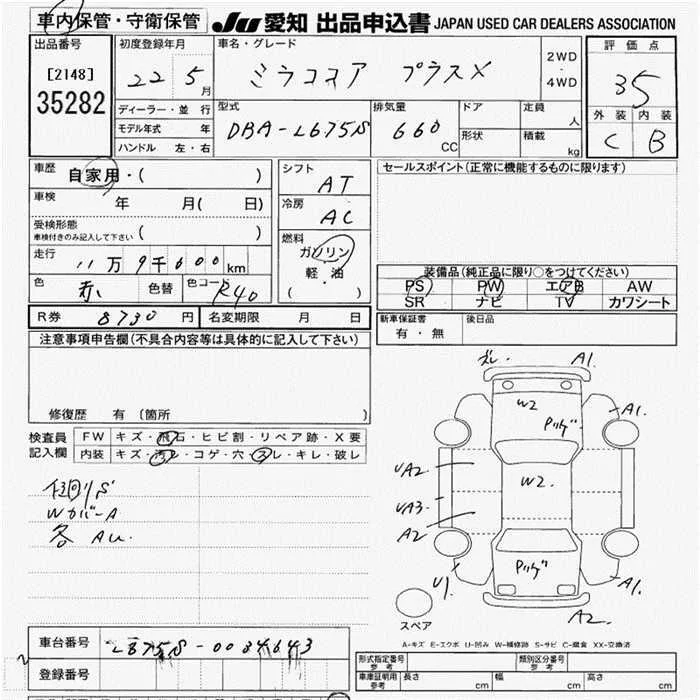 車内保管・守衛保管 JU愛知 出品申込書 JAPAN USED CAR DEALERS ASSOCIATION
出品番号 初度登録年月 車名・グレード 評価点
[2148] 22 5月 ミラココア プラスX 2WD・4WD 35
35282 ディーラー・並行 型式 排気量 ドア 定員 人 外装 内装
モデル年式 年 DBA-L675S 660 CC 形状 積載 kg C B
ハンドル 左・右
車歴 自家用・( ) シフト AT セールスポイント(正常に機能するものに限ります)
車検 年 月( 日) 冷房 AC
受検形態 車検付きのみ記入して下さい( ) 燃料 ガソリン
走行 11万9千600km 軽・油
色 赤 色替 色コード R40 ( ) 装備品(純正品に限り○をつけてください)
PS PW エアB AW
SR ナビ TV カワシート
R券 8730円 名変期限 月 日 新車保証書 有・無 後日品
注意事項申告欄(不具合内容等は具体的に記入して下さい)
修復歴 有 (箇所
検査員記入欄 FW キズ・飛石・ヒビ割・リペア跡・X要
内装 キズ・汚レ・コゲ・穴・スレ・キレ・破レ
WカバーA
各 AU.
ズレ. A1.
W2 Pリゲ A1
UA2 W2.
UA3
A2
U1 Pリゲ A1.
A2.
スペア
A-キズ E-エクボ U-凹み W-補修跡 S-サビ C-腐食 XX-交換済
車台番号 L675S-0034643
登録番号
形式指定番号 参考 類別区分番号 参考
車庫証明用 参考 長さ cm 幅 cm 高さ cm